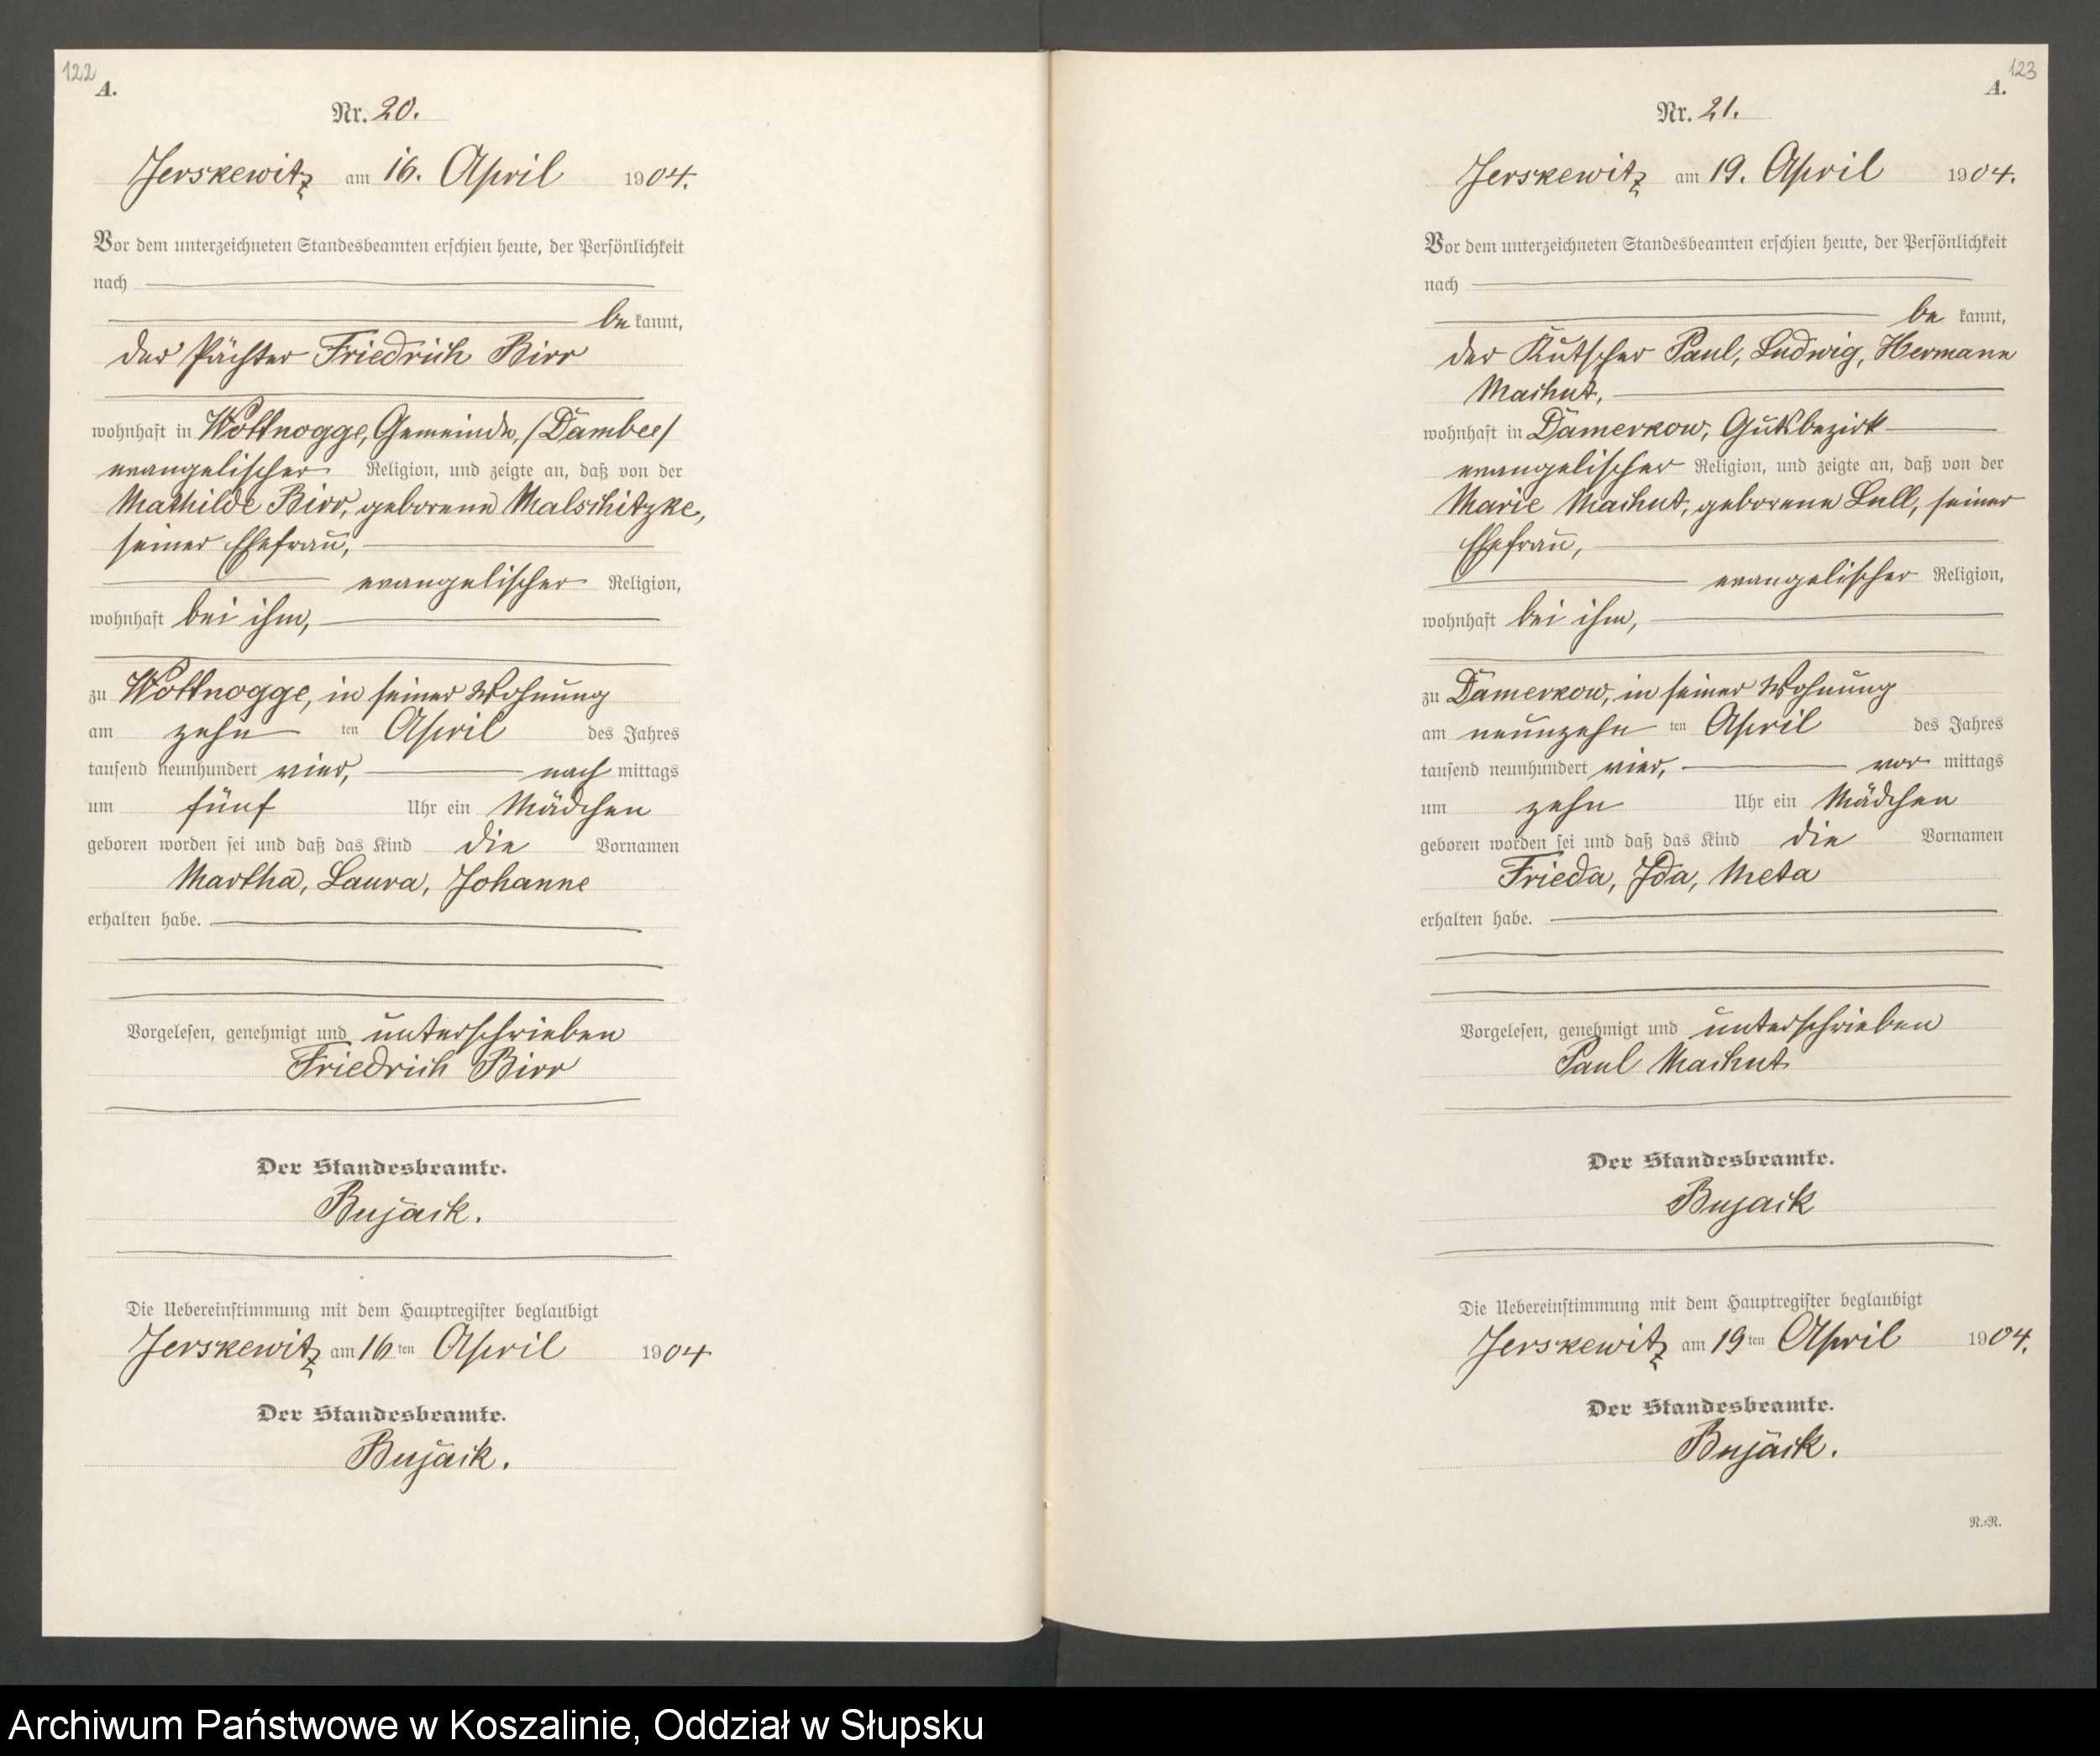 122
A.
Nr. 20.
Jerskewitz am 16. April 1904.
Vor dem unterzeichneten Standesbeamten erschien heute, der Persönlichkeit
nach
be kannt,
der Pächter Friedrich Birr
wohnhaft in Wottnogge, Gemeinde, /Dambee/
evangelischer Religion, und zeigte an, daß von der
Mathilde Birr, geborene Malschitzke,
seiner Ehefrau,
evangelischer Religion,
wohnhaft bei ihm,
zu Wottnogge, in seiner Wohnung
am zehn ten April des Jahres
tausend neunhundert vier, nach mittags
um fünf Uhr ein Mädchen
geboren worden sei und daß das Kind die Vornamen
Martha, Laura, Johanne
erhalten habe.
Vorgelesen, genehmigt und unterschrieben
Friedrich Birr
Der Standesbeamte.
Bujack.
Die Uebereinstimmung mit dem Hauptregister beglaubigt
Jerskewitz am 16 ten April 1904
Der Standesbeamte.
Bujack.
123
A.
Nr. 21.
Jerskewitz am 19. April 1904.
Vor dem unterzeichneten Standesbeamten erschien heute, der Persönlichkeit
nach
be kannt,
der Kutscher Paul, Ludwig, Hermann
Machut,
wohnhaft in Damerkow, Gutsbezirk
evangelischer Religion, und zeigte an, daß von der
Marie Machut, geborene Lull, seiner
Ehefrau,
evangelischer Religion,
wohnhaft bei ihm,
zu Damerkow, in seiner Wohnung
am neunzehn ten April des Jahres
tausend neunhundert vier, vor mittags
um zehn Uhr ein Mädchen
geboren worden sei und daß das Kind die Vornamen
Frieda, Ida, Meta
erhalten habe.
Vorgelesen, genehmigt und unterschrieben
Paul Machut
Der Standesbeamte.
Bujack
Die Uebereinstimmung mit dem Hauptregister beglaubigt
Jerskewitz am 19 ten April 1904.
Der Standesbeamte.
Bujack.
R.=R.
Archiwum Państwowe w Koszalinie, Oddział w Słupsku